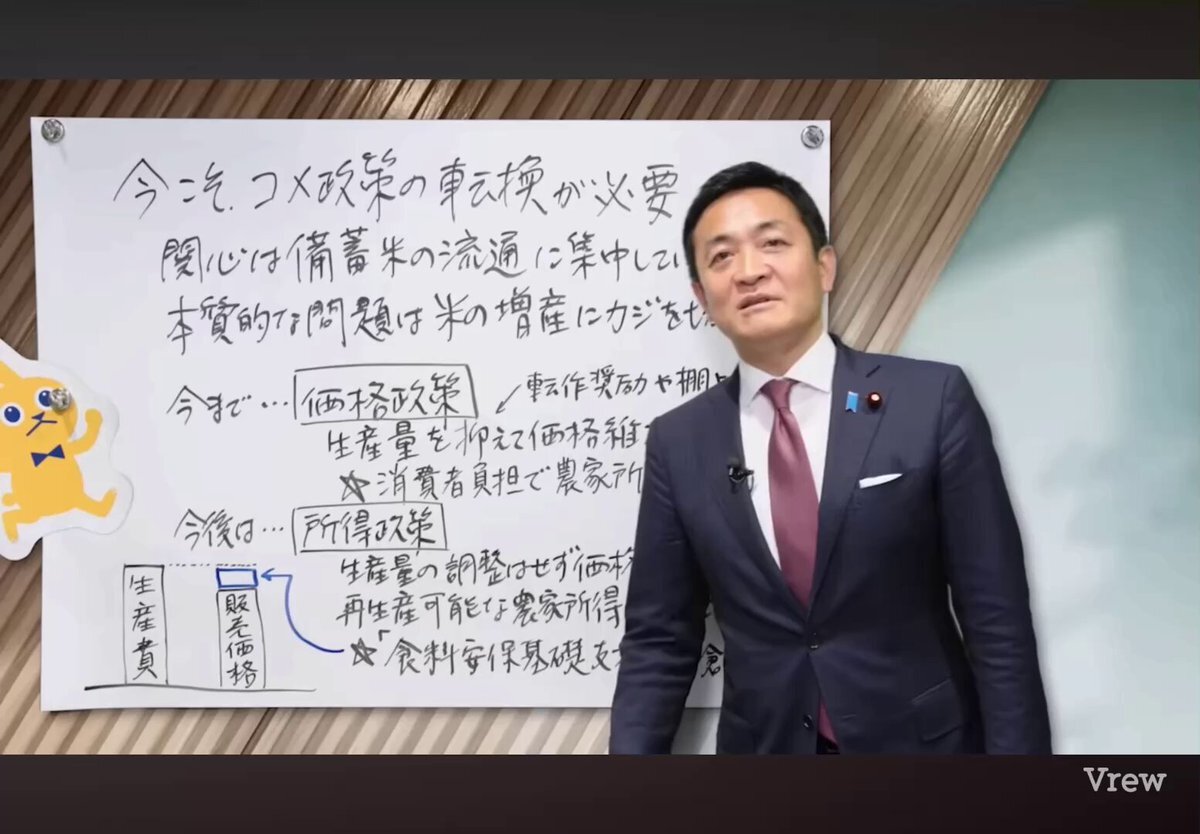 今こそ、コメ政策の転換が必要
関心は備蓄米の流通に集中してい
本質的な問題は米の増産にカジを切
今まで…価格政策
転作奨励や棚上
生産量を抑えて価格維
☆消費者負担で農家所
今後は…所得政策
生産量の調整はせず価格
再生産可能な農家所得
☆「食料安保基礎支
倉
生産費
販売価格
Vrew